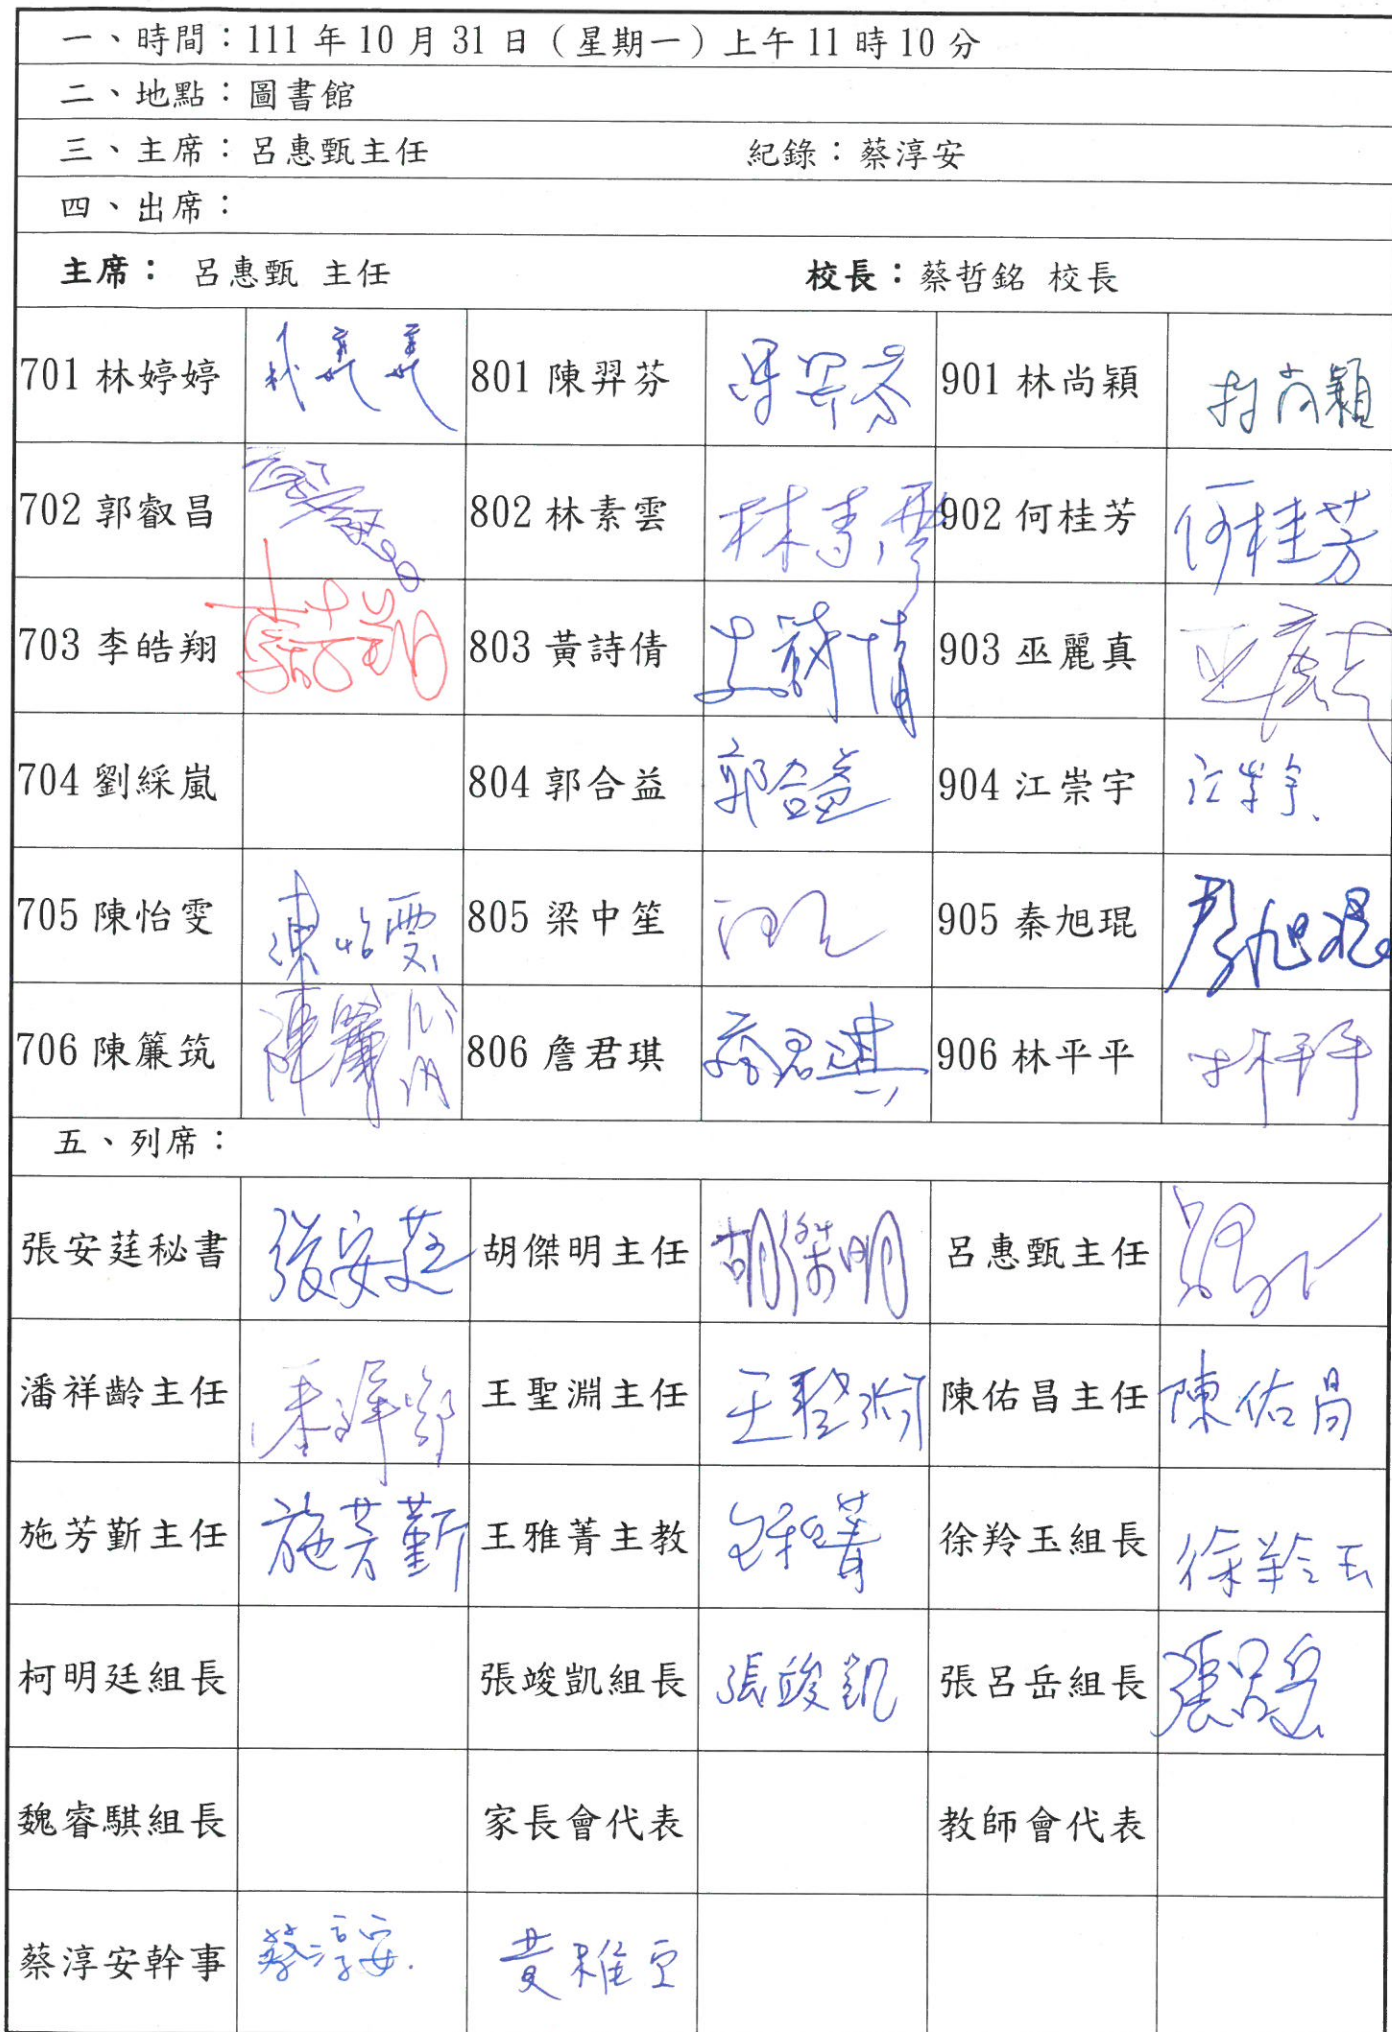 一、時間：111 年 10 月 31 日（星期一）上午 11 時 10 分
二、地點：圖書館
三、主席：呂惠甄主任 紀錄：蔡淳安
四、出席：
主席： 呂惠甄 主任 校長：蔡哲銘 校長
701 林婷婷 林婷婷 801 陳羿芬 陳羿芬 901 林尚穎 林尚穎
702 郭叡昌 802 林素雲 林素雲 902 何桂芳 何桂芳
703 李皓翔 李皓翔 803 黃詩倩 黃詩倩 903 巫麗真 巫麗真
704 劉綵嵐 804 郭合益 郭合益 904 江崇宇 江崇宇
705 陳怡雯 陳怡雯 805 梁中笙 905 秦旭琨 秦旭琨
706 陳簾筑 陳簾筑 806 詹君琪 詹君琪 906 林平平 林平平
五、列席：
張安莛秘書 張安莛 胡傑明主任 胡傑明 呂惠甄主任
潘祥齡主任 潘祥齡 王聖淵主任 王聖淵 陳佑昌主任 陳佑昌
施芳斳主任 施芳斳 王雅菁主教 王雅菁 徐羚玉組長 徐羚玉
柯明廷組長 張竣凱組長 張竣凱 張呂岳組長 張呂岳
魏睿騏組長 家長會代表 教師會代表
蔡淳安幹事 蔡淳安 黃雅